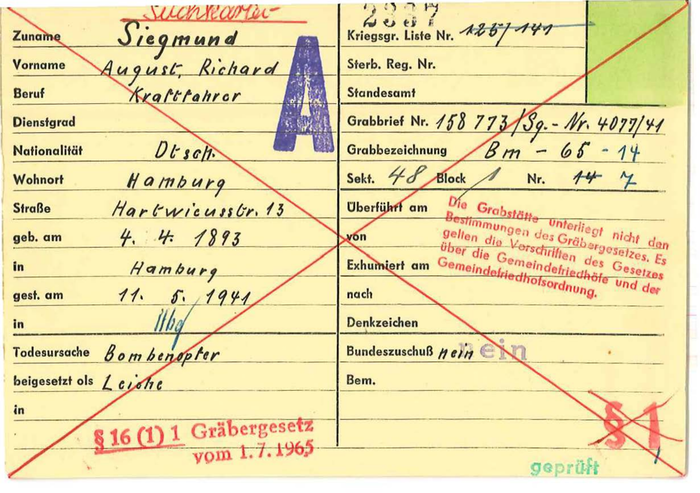 Suchkartei
Zuname Siegmund
Vorname August, Richard
Beruf Kraftfahrer
Dienstgrad
Nationalität Dtsch.
Wohnort Hamburg
Straße Hartwicusstr. 13
geb. am 4. 4. 1893
in Hamburg
gest. am 11. 5. 1941
in Hbg
Todesursache Bombenopfer
beigesetzt als Leiche
in
§ 16 (1) 1 Gräbergesetz
vom 1.7.1965
A
2337
Kriegsgr. Liste Nr. 125/141
Sterb. Reg. Nr.
Standesamt
Grabbrief Nr. 158 773/Sg.-Nr. 4077/41
Grabbezeichnung Bm - 65 - 14
Sekt. 48 Block 1 Nr. 14 7
Überführt am
von
Exhumiert am
nach
Die Grabstätte unterliegt nicht den
Bestimmungen des Gräbergesetzes. Es
gelten die Vorschriften des Gesetzes
über die Gemeindefriedhöfe und der
Gemeindefriedhofsordnung.
Denkzeichen
Bundeszuschuß nein nein
Bem.
§ 1
geprüft